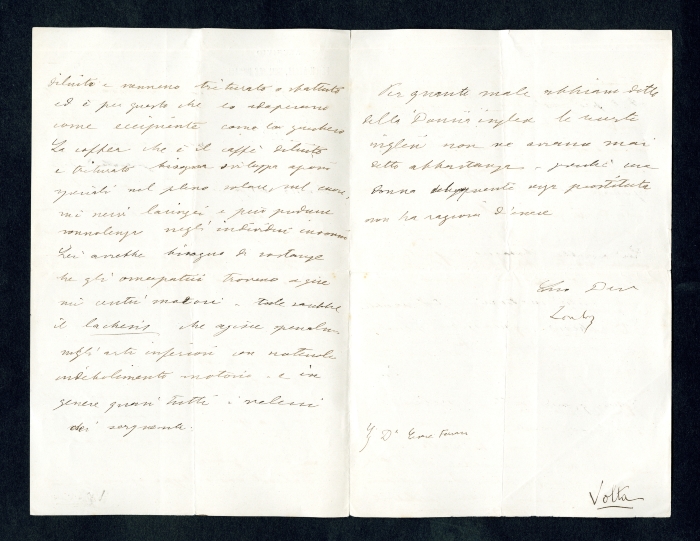 diluito e vennero triturato o sbattuto
ed è per questo che lo adoperano
come eccipiente como lo zucchero
La coffea che è il caffè diluito
e triturato bisogna sviluppa azioni
speciali nel pleno solare, nel cuore,
nei nervi laringei e può produrre
sonnolenza negli individui insonni
Lei avrebbe bisogno di sostanze
che gli omeopatici trovano agire
nei centri motori - tale sarebbe
il lachesis che agisce
negli arti inferiori con notevole
indebolimento motorio - e in
genere quasi tutti i veleni
dei serpenti.
Per quanto male abbiano detto
delle Donne inglesi le
inglesi non ne avranno mai
detto abbastanza - perché una
donna
non ha ragione d'essere
Suo Dev
Volta